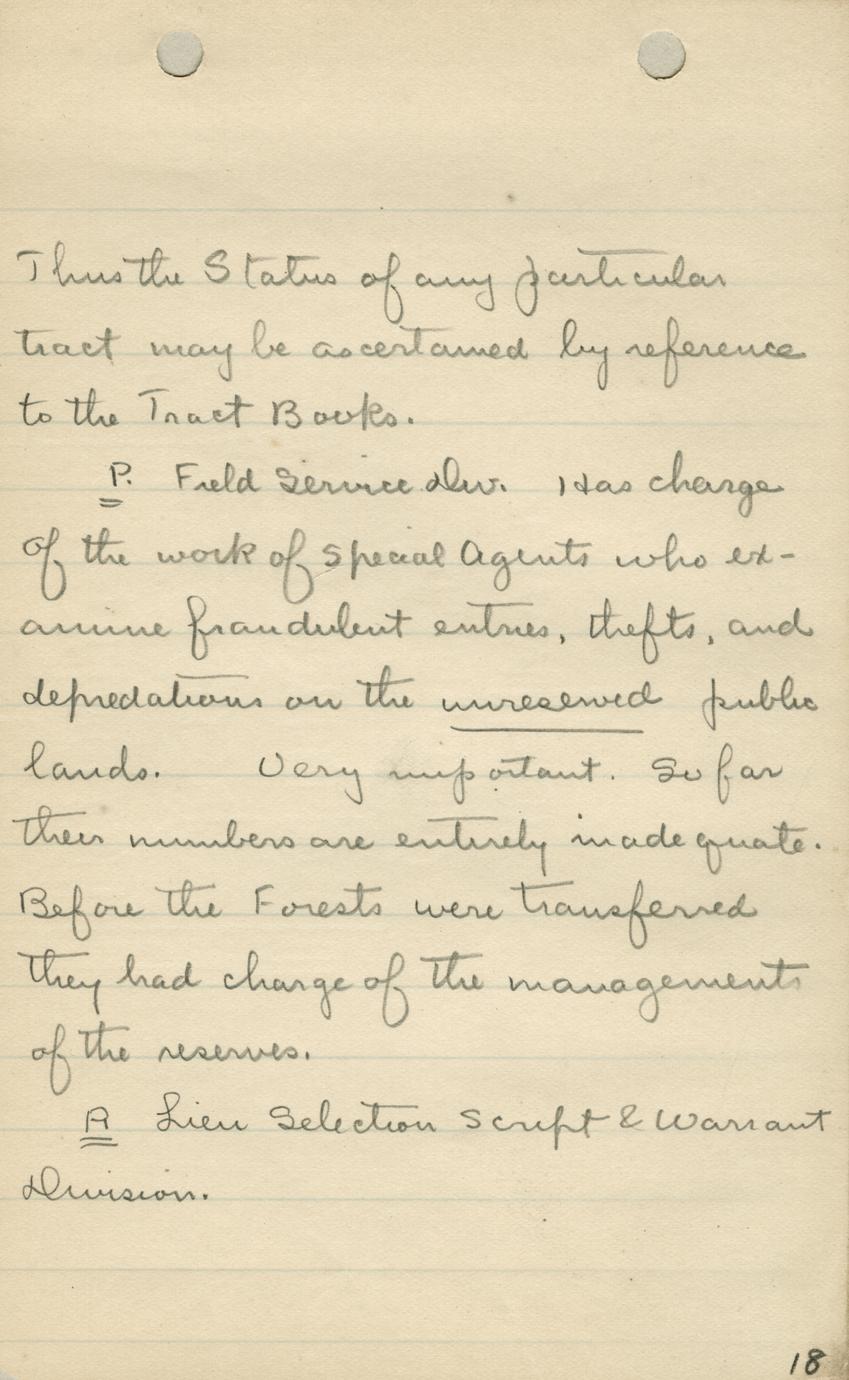 Thus the Status of any particular
tract may be ascertained by reference
to the Tract Books.
P. Field Service Div. Has charge
of the work of special Agents who ex-
amine fraudulent entries, thefts, and
depredations on the unreserved public
lands. Very important. So far
their numbers are entirely inadequate.
Before the Forests were transferred
they had charge of the managements
of the reserves.
R Lieu Selection Script & Warrant
Division.
18